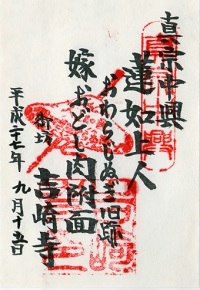 真宗中興
蓮如上人
おわらもぬき旧跡
嫁おどし肉附面
御坊
吉崎寺
平成二十七年 九月十五日